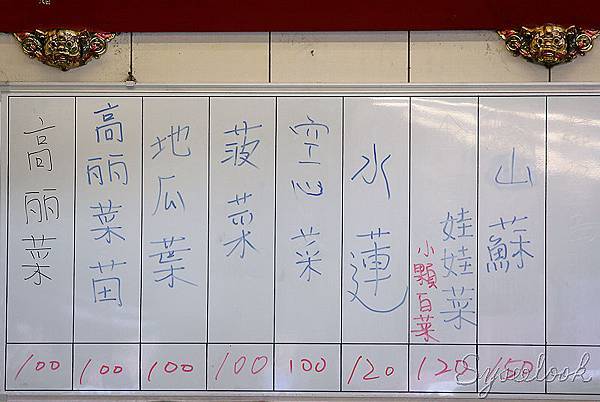 山蘇
150
娃娃菜
小顆百菜
120
水蓮
120
空心菜
100
菠菜
100
地瓜葉
100
高丽菜苗
100
高丽菜
100